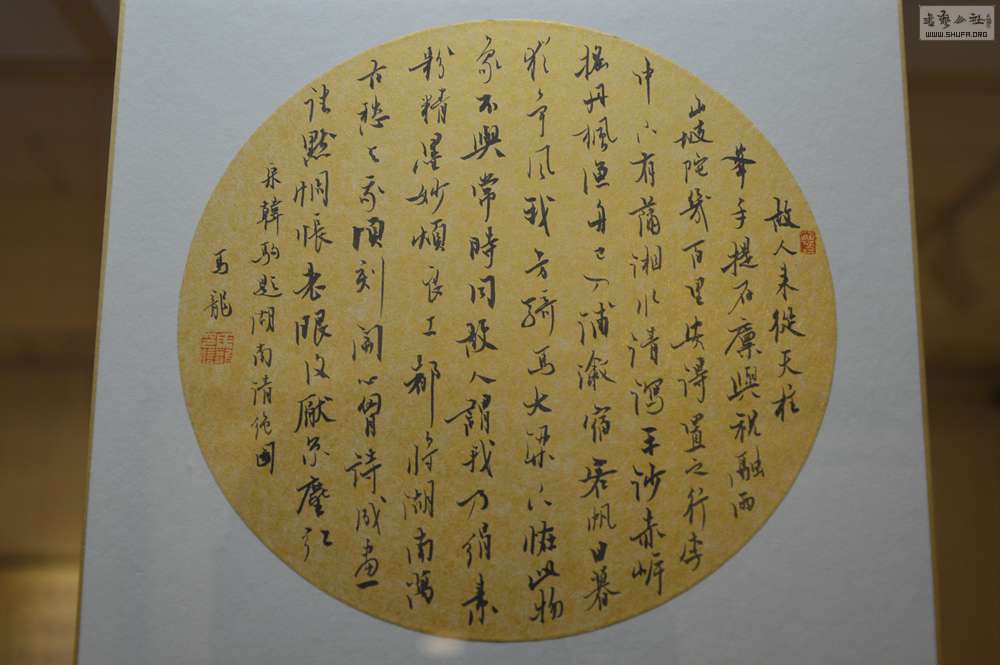 故人来從天柱
峯手提石廩與祝融兩
山坡陀幾百里安得置之行李
中下有瀟湘水清瀉平沙赤岸
搖丹楓漁舟已入浦漵宿客帆日暮
猶爭風我方騎馬大梁下怪此物
象不與常時同故人謂我乃絹素
粉精墨妙煩良工都將湖南萬
古愁與我頃刻開心胷詩成畫
往默惆悵老眼復厭京塵紅
宋韓駒題湖南清绝圖
馬龍
書藝公社
WWW.SHUFA.ORG